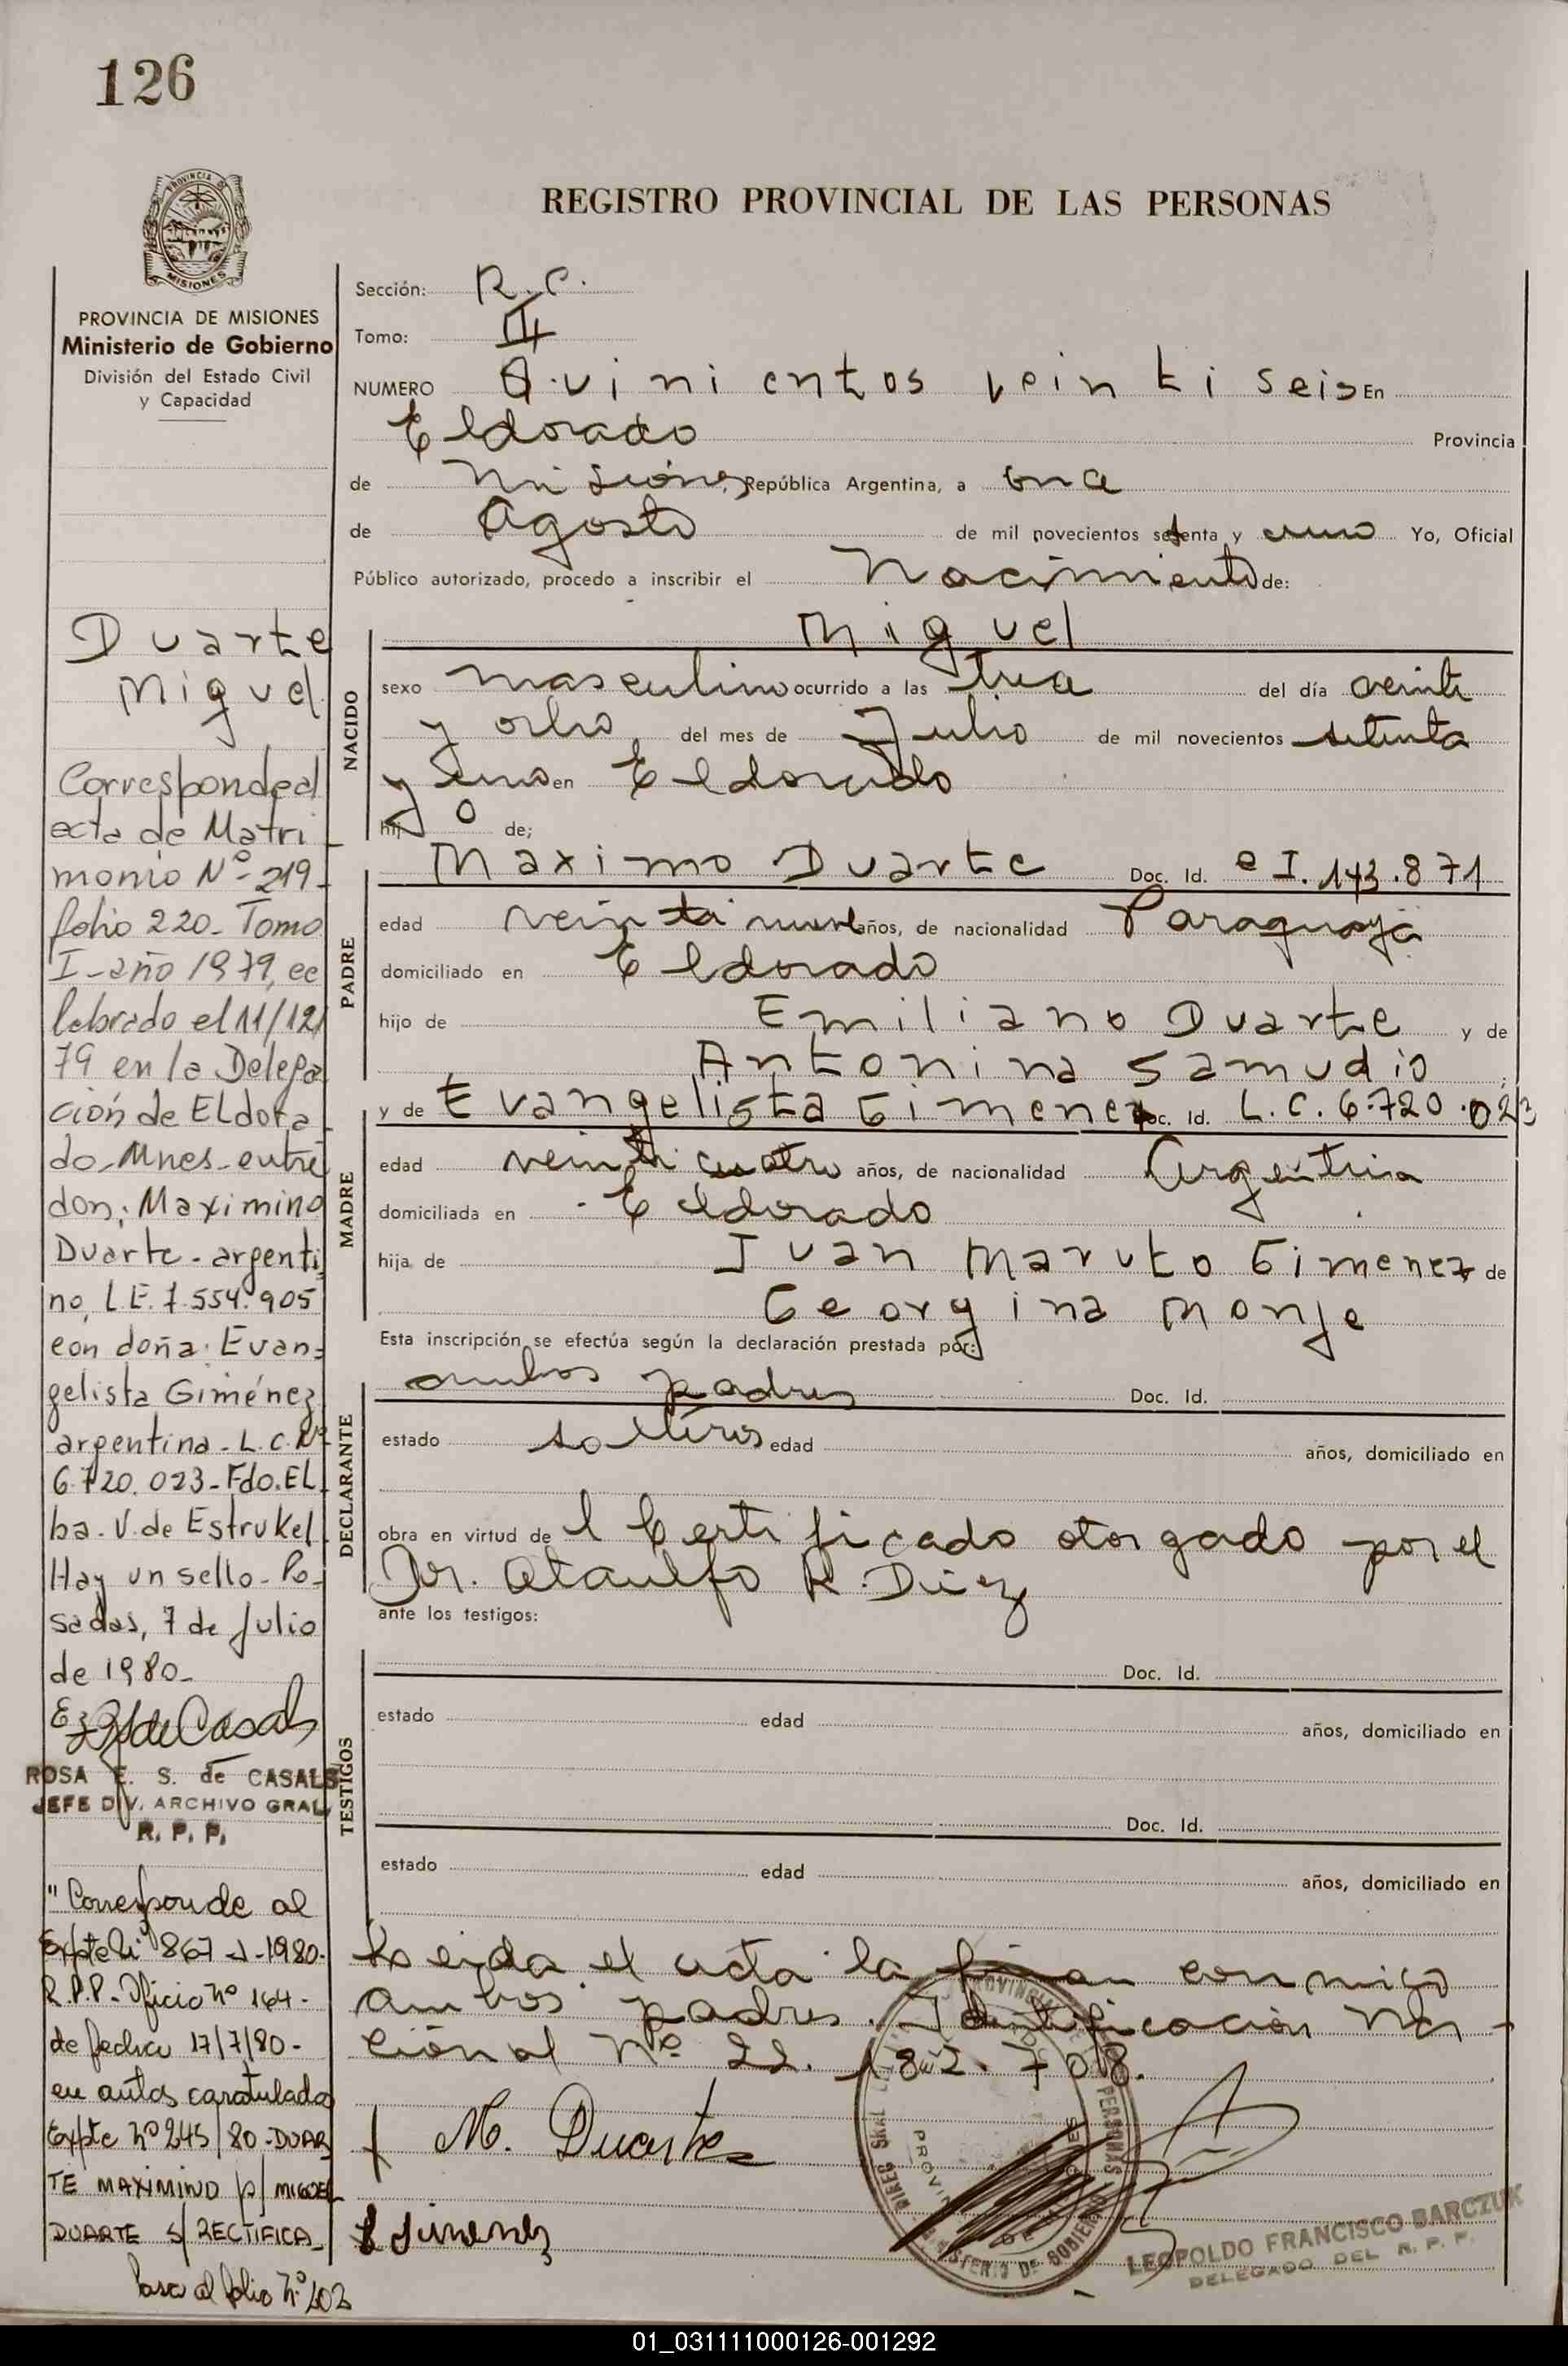 126
PROVINCIA DE
MISIONES
REGISTRO PROVINCIAL DE LAS PERSONAS
PROVINCIA DE MISIONES
Ministerio de Gobierno
División del Estado Civil
y Capacidad
Duarte
Miguel
Corresponde al
acta de Matri
monio Nº 219-
folio 220- Tomo
I-año 1979, ce
lebrado el 11/12/
79 en la Delega
ción de ELdora
do-Mnes-entre
don: Maximino
Duarte-argenti
no, L.E. 7.554.905
con doña: Evan-
gelista Giménez
argentina-L.C.Nº
6.720.023-Fdo.EL
ba-V.de Estrukel
Hay un sello-Po-
sadas, 7 de Julio
de 1980-
ROSA E. S. de CASALS
JEFE DIV. ARCHIVO GRAL.
R. P. P.
"Corresponde al
Expte Nº 867-J-1980-
R.P.P-Oficio nº 164-
de fecha 17/7/80-
en autos caratulados
Expte nº 245/80-DUAR
TE MAXIMINO p/ MIGUEL
DUARTE S/ RECTIFICA-
Pasa al folio Nº 202
Sección: R.C.
Tomo: III
NUMERO Quinientos veintiseis En
Eldorado Provincia
de Misiones, República Argentina, a once
de Agosto de mil novecientos setenta y uno Yo, Oficial
Público autorizado, procedo a inscribir el Nacimiento de:
NACIDO
Miguel
sexo masculino ocurrido a las trece del día veinti
y ocho del mes de Julio de mil novecientos setenta
y uno en Eldorado
hijo de;
PADRE
Maximo Duarte Doc. Id. C I. 143.871
edad veinti nueve años, de nacionalidad Paraguaya
domiciliado en Eldorado
hijo de Emiliano Duarte y de
Antonina Samudio
MADRE
y de Evangelista Gimenez Doc. Id. L.C. 6.720.023
edad veinti cuatro años, de nacionalidad Argentina
domiciliada en Eldorado
hija de Juan Maruto Gimenez de
Georgina Monje
Esta inscripción se efectúa según la declaración prestada por:
DECLARANTE
ambos padres Doc. Id.
estado solteros edad años, domiciliado en
obra en virtud del Certificado otorgado por el
Dr. Ataulfo R. Diez
ante los testigos:
TESTIGOS
Doc. Id.
estado edad años, domiciliado en
Doc. Id.
estado edad años, domiciliado en
Leida el acta la firman conmigo
ambos padres. Identificación Na-
cional Nº 22.182.708.
M. Duarte
E Jimenez
LEOPOLDO FRANCISCO BARCZUK
DELEGADO DEL R. P. P.
01_031111000126-001292